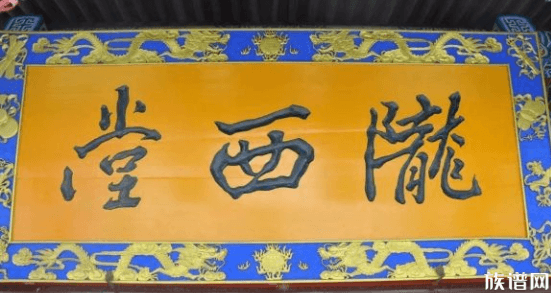 隴西堂
族谱网